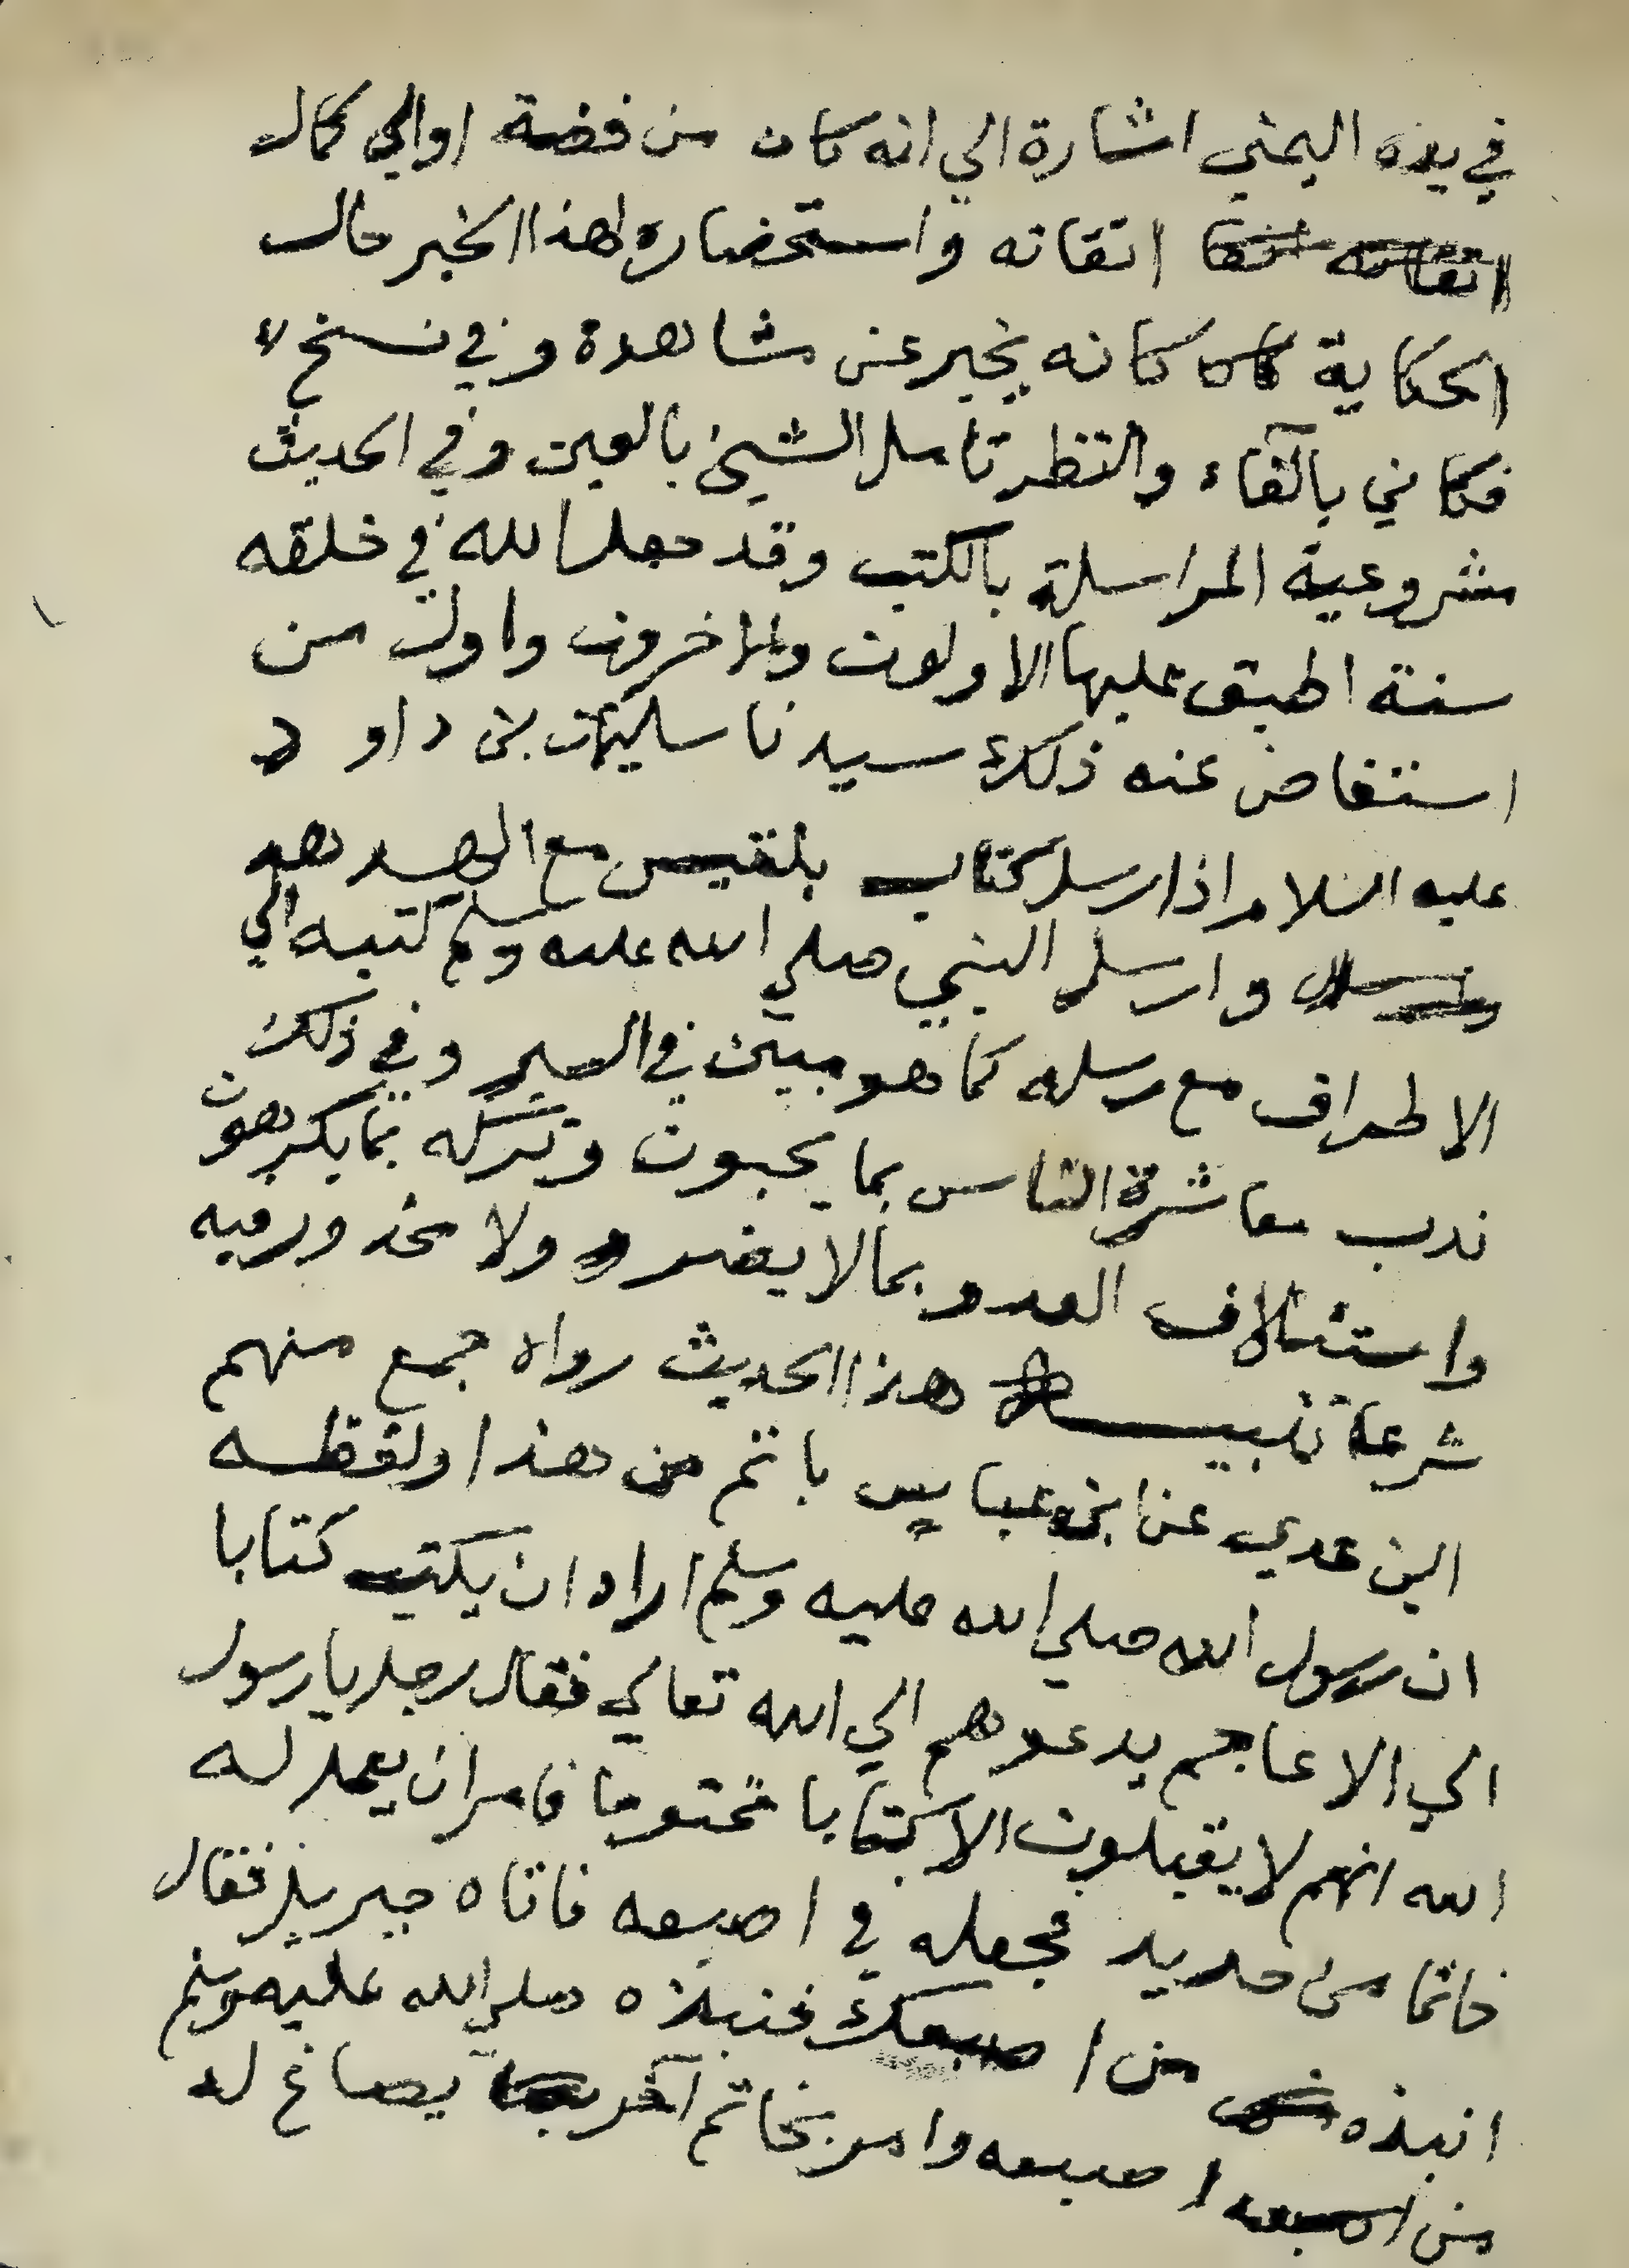 في يده اليمني اشارة الي انه كان من فضة اوالي كمال
اتقانه اتقا اتقانه واستحضاره لهذا الخبر حال
الحكاية كان كانه يخبر عن مشاهدة وفي نسخ
فكاني بالفاء والنظر تامل الشيئ بالعين وفي الحديث
مشروعية المراسلة بالكتب وقد جعل الله في خلقه
سنة اطبق عليها الاولون والاخرون واول من
استفاض عنه ذلك سيدنا سليمان بن داود
عليه السلام اذ ارسل كتاب بلقيس مع الهدهد
وارسل النبي صلي الله عليه وسلم كتبه الي
الاطراف مع رسله كما هو مبين في السير وفي ذلك
ندب معاشرة الناس بما يحبون وتركه بما يكرهون
واستئلاف العدو بما لا يضر ولا محذور فيه
شرعا تنبيه هذا الحديث رواه جمع منهم
ابن عدي عن ابن عباس باتم من هذا ولفظه
ان رسول الله صلي الله عليه وسلم اراد ان يكتب كتابا
الي الاعاجم يدعوهم الي الله تعالي فقال رجل يا رسول
الله انهم لا يقبلون الا كتابا مختوما فامر ان يعمل له
خاتما من حديد فجعله في اصبعه فاتاه جبريل فقال
انبذه من اصبعك فنبذه صلي الله عليه وسلم
من اصبعه اصبعه وامر بخاتم آخر يصاغ له